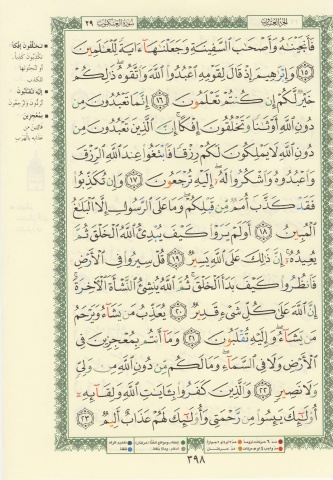 الجزء العشرون
سورة العنكبوت ٢٩
فَأَنجَيْنَٰهُ وَأَصْحَٰبَ ٱلسَّفِينَةِ وَجَعَلْنَٰهَآ ءَايَةً لِّلْعَٰلَمِينَ
﴿١٥﴾ وَإِبْرَٰهِيمَ إِذْ قَالَ لِقَوْمِهِ ٱعْبُدُوا۟ ٱللَّهَ وَٱتَّقُوهُ ۖ ذَٰلِكُمْ
خَيْرٌ لَّكُمْ إِن كُنتُمْ تَعْلَمُونَ ﴿١٦﴾ إِنَّمَا تَعْبُدُونَ مِن
دُونِ ٱللَّهِ أَوْثَٰنًا وَتَخْلُقُونَ إِفْكًا ۚ إِنَّ ٱلَّذِينَ تَعْبُدُونَ مِن
دُونِ ٱللَّهِ لَا يَمْلِكُونَ لَكُمْ رِزْقًا فَٱبْتَغُوا۟ عِندَ ٱللَّهِ ٱلرِّزْقَ
وَٱعْبُدُوهُ وَٱشْكُرُوا۟ لَهُۥٓ ۖ إِلَيْهِ تُرْجَعُونَ ﴿١٧﴾ وَإِن تُكَذِّبُوا۟
فَقَدْ كَذَّبَ أُمَمٌ مِّن قَبْلِكُمْ ۖ وَمَا عَلَى ٱلرَّسُولِ إِلَّا ٱلْبَلَٰغُ
ٱلْمُبِينُ ﴿١٨﴾ أَوَلَمْ يَرَوْا۟ كَيْفَ يُبْدِئُ ٱللَّهُ ٱلْخَلْقَ ثُمَّ
يُعِيدُهُۥٓ ۚ إِنَّ ذَٰلِكَ عَلَى ٱللَّهِ يَسِيرٌ ﴿١٩﴾ قُلْ سِيرُوا۟ فِى ٱلْأَرْضِ
فَٱنظُرُوا۟ كَيْفَ بَدَأَ ٱلْخَلْقَ ۚ ثُمَّ ٱللَّهُ يُنشِئُ ٱلنَّشْأَةَ ٱلْءَاخِرَةَ ۚ
إِنَّ ٱللَّهَ عَلَىٰ كُلِّ شَىْءٍ قَدِيرٌ ﴿٢٠﴾ يُعَذِّبُ مَن يَشَآءُ وَيَرْحَمُ
مَن يَشَآءُ ۖ وَإِلَيْهِ تُقْلَبُونَ ﴿٢١﴾ وَمَآ أَنتُم بِمُعْجِزِينَ فِى
ٱلْأَرْضِ وَلَا فِى ٱلسَّمَآءِ ۖ وَمَا لَكُم مِّن دُونِ ٱللَّهِ مِن وَلِىٍّ
وَلَا نَصِيرٍ ﴿٢٢﴾ وَٱلَّذِينَ كَفَرُوا۟ بِـَٔايَٰتِ ٱللَّهِ وَلِقَآئِهِۦٓ
أُو۟لَٰٓئِكَ يَئِسُوا۟ مِن رَّحْمَتِى وَأُو۟لَٰٓئِكَ لَهُمْ عَذَابٌ أَلِيمٌ ﴿٢٣﴾
تخلقون إفكا
إليه تقلبون
بمعجزين
٣٩٨